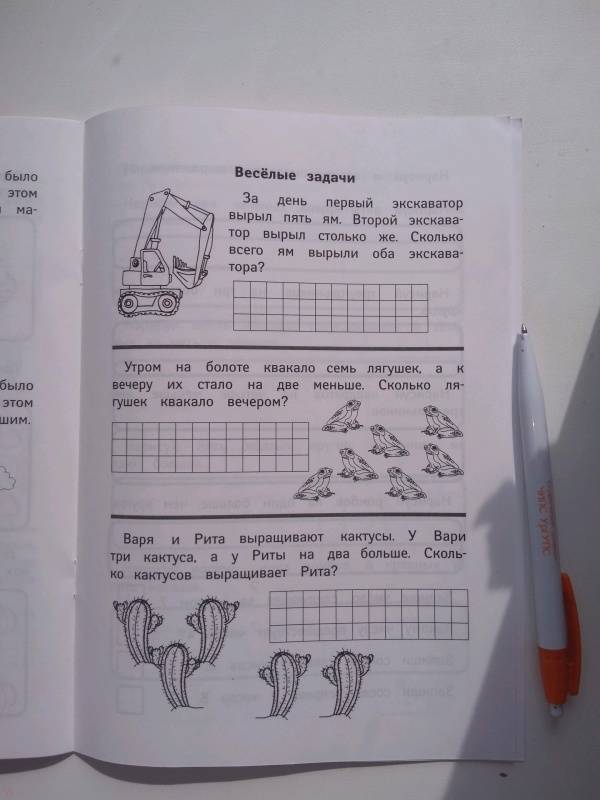 было
этом
ма-
было
этом
шим.
Весёлые задачи
За день первый экскаватор
вырыл пять ям. Второй экскава-
тор вырыл столько же. Сколько
всего ям вырыли оба экскава-
тора?
Утром на болоте квакало семь лягушек, а к
вечеру их стало на две меньше. Сколько ля-
гушек квакало вечером?
Варя и Рита выращивают кактусы. У Вари
три кактуса, а у Риты на два больше. Сколь-
ко кактусов выращивает Рита?